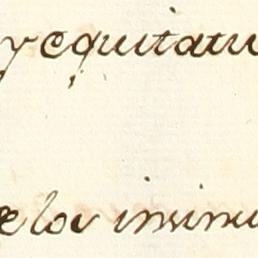 y equitatu
e los insinu